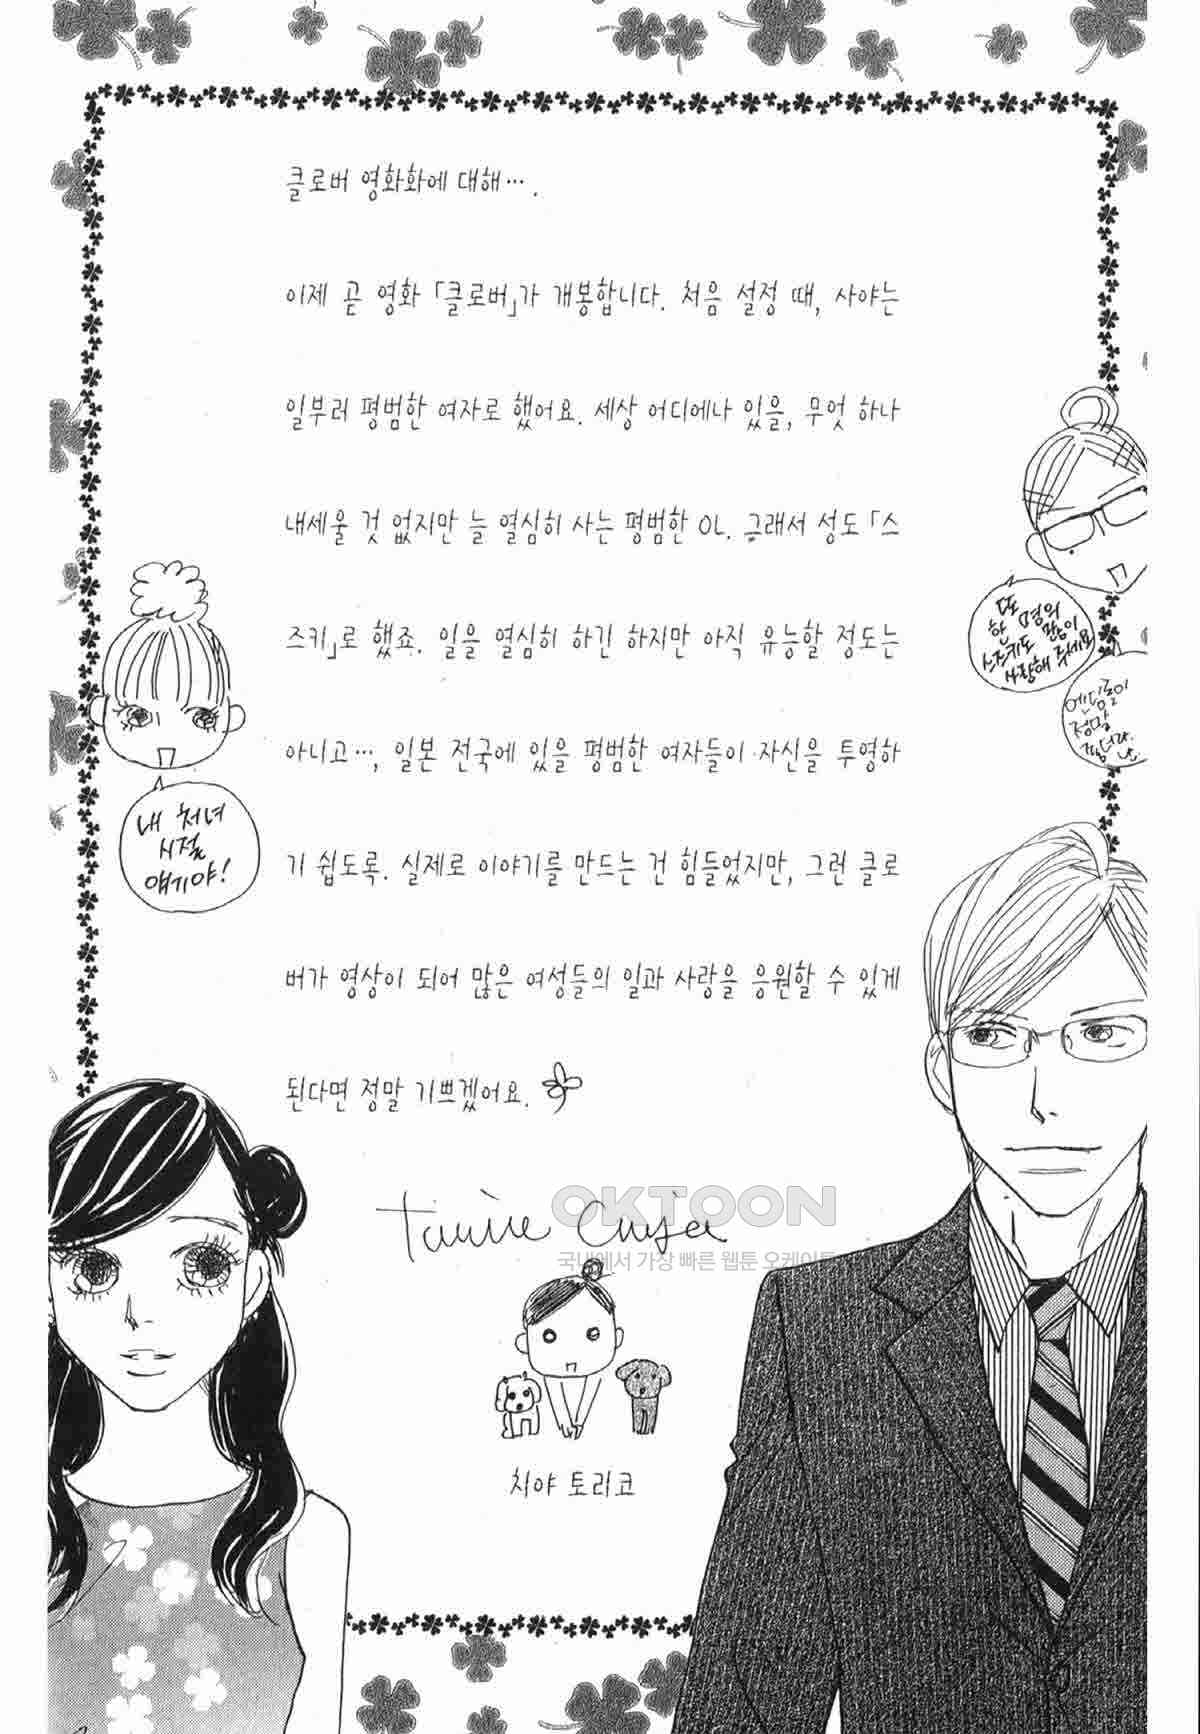 클로버 영화화에 대해….
이제 곧 영화 「클로버」가 개봉합니다. 처음 설정 때, 사야는
일부러 평범한 여자로 했어요. 세상 어디에나 있을, 무엇 하나
내세울 것 없지만 늘 열심히 사는 평범한 OL. 그래서 성도 「스
즈키」로 했죠. 일을 열심히 하긴 하지만 아직 유능할 정도는
아니고…, 일본 전국에 있을 평범한 여자들이 자신을 투영하
기 쉽도록. 실제로 이야기를 만드는 건 힘들었지만, 그런 클로
버가 영상이 되어 많은 여성들의 일과 사랑을 응원할 수 있게
된다면 정말 기쁘겠어요.
또
한 명의
스즈키도 많이
사랑해 주세요
정말
내 처녀
시절
얘기야!
OKTOON
국내에서 가장 빠른 웹툰 오케이툰
치야 토리코